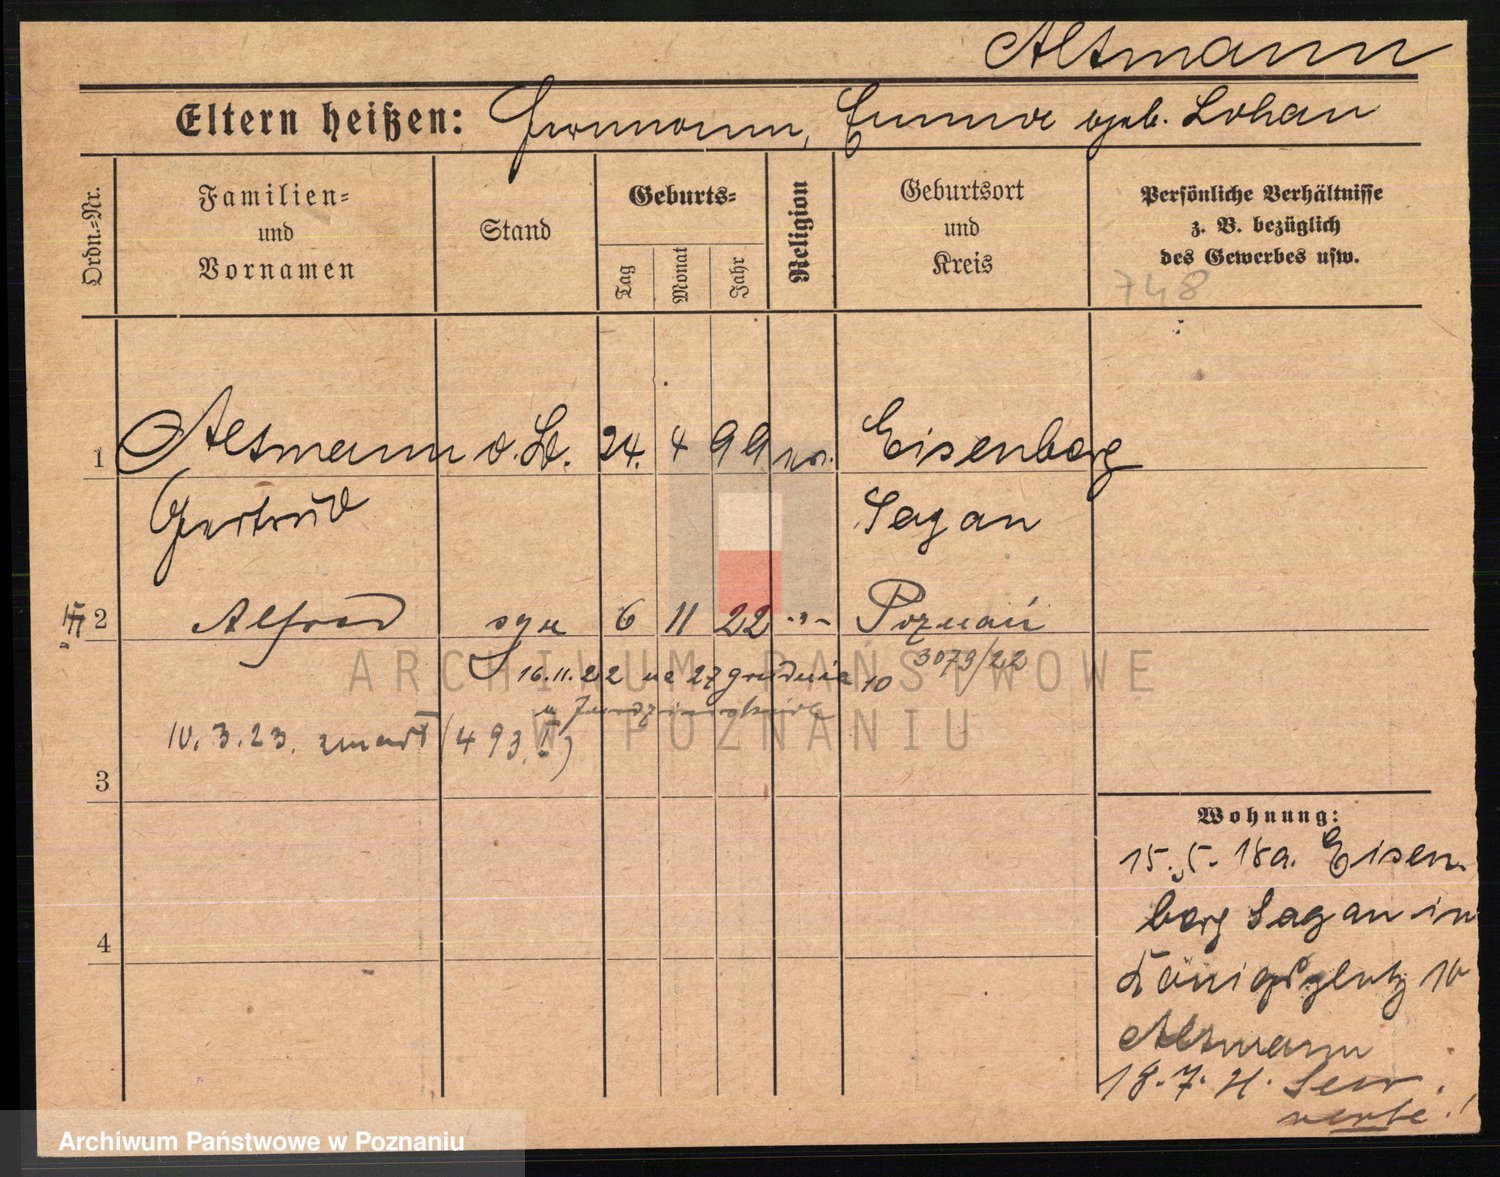 Altmann
Eltern heißen: Hermann, Emma geb. Lohan
Ordn.=Nr.
Familien=
und
Vornamen
Stand
Geburts=
Tag
Monat
Jahr
Religion
Geburtsort
und
Kreis
Persönliche Verhältnisse
z. B. bezüglich
des Gewerbes usw.
748
1 Altmann 24. 4 99 Eisenberg
Gertrud Sagan
2 Alfred syn 6 11 22 Poznań
3079/22
16.11.22 na 27 grudnia 10
10.3.23. zmarł (493.I)
3
Wohnung:
15.5.18 a. Eisen-
berg Sagan in
Königsplatz 10
4
Altmann
18.7.21.
ARCHIWUM PAŃSTWOWE
W POZNANIU
Archiwum Państwowe w Poznaniu